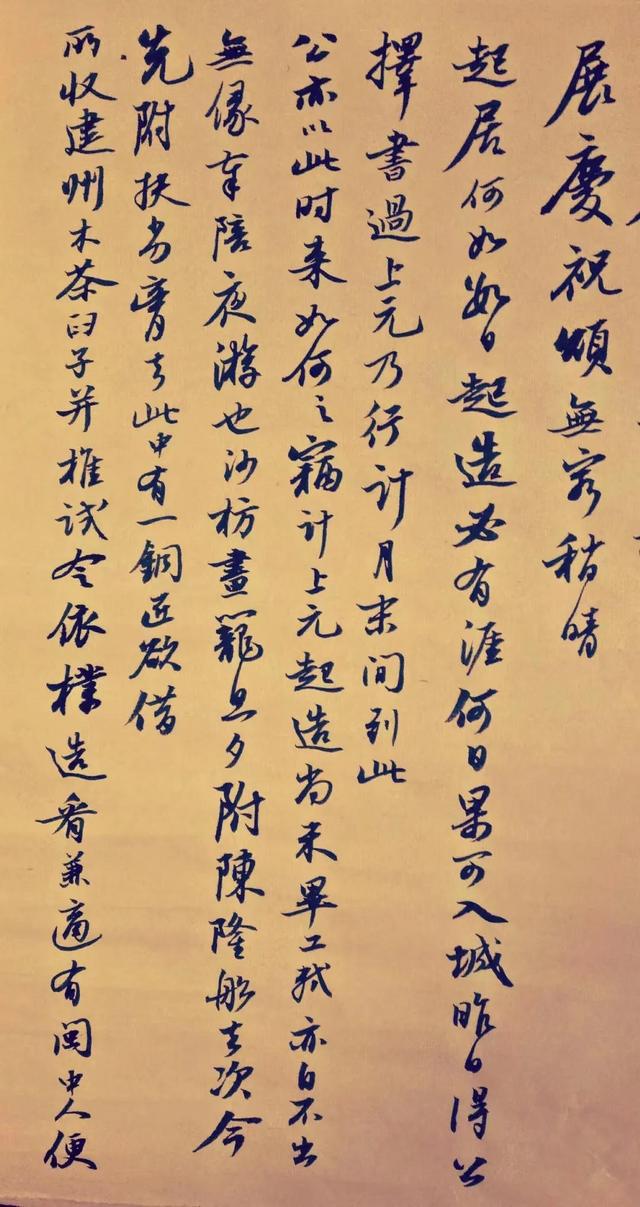 展慶祝頌無窮稍晴
起居何如數日起造必有涯何日果可入城昨日得公
擇書過上元乃行計月末间到此
公亦以此时来如何〻竊計上元起造尚未畢工軾亦自不出
無緣奉陪夜游也沙枋畫籠旦夕附陳隆船去次今
先附扶劣膏去此中有一銅匠欲借
所收建州木茶臼子并椎試令依樣造看兼適有閩中人便